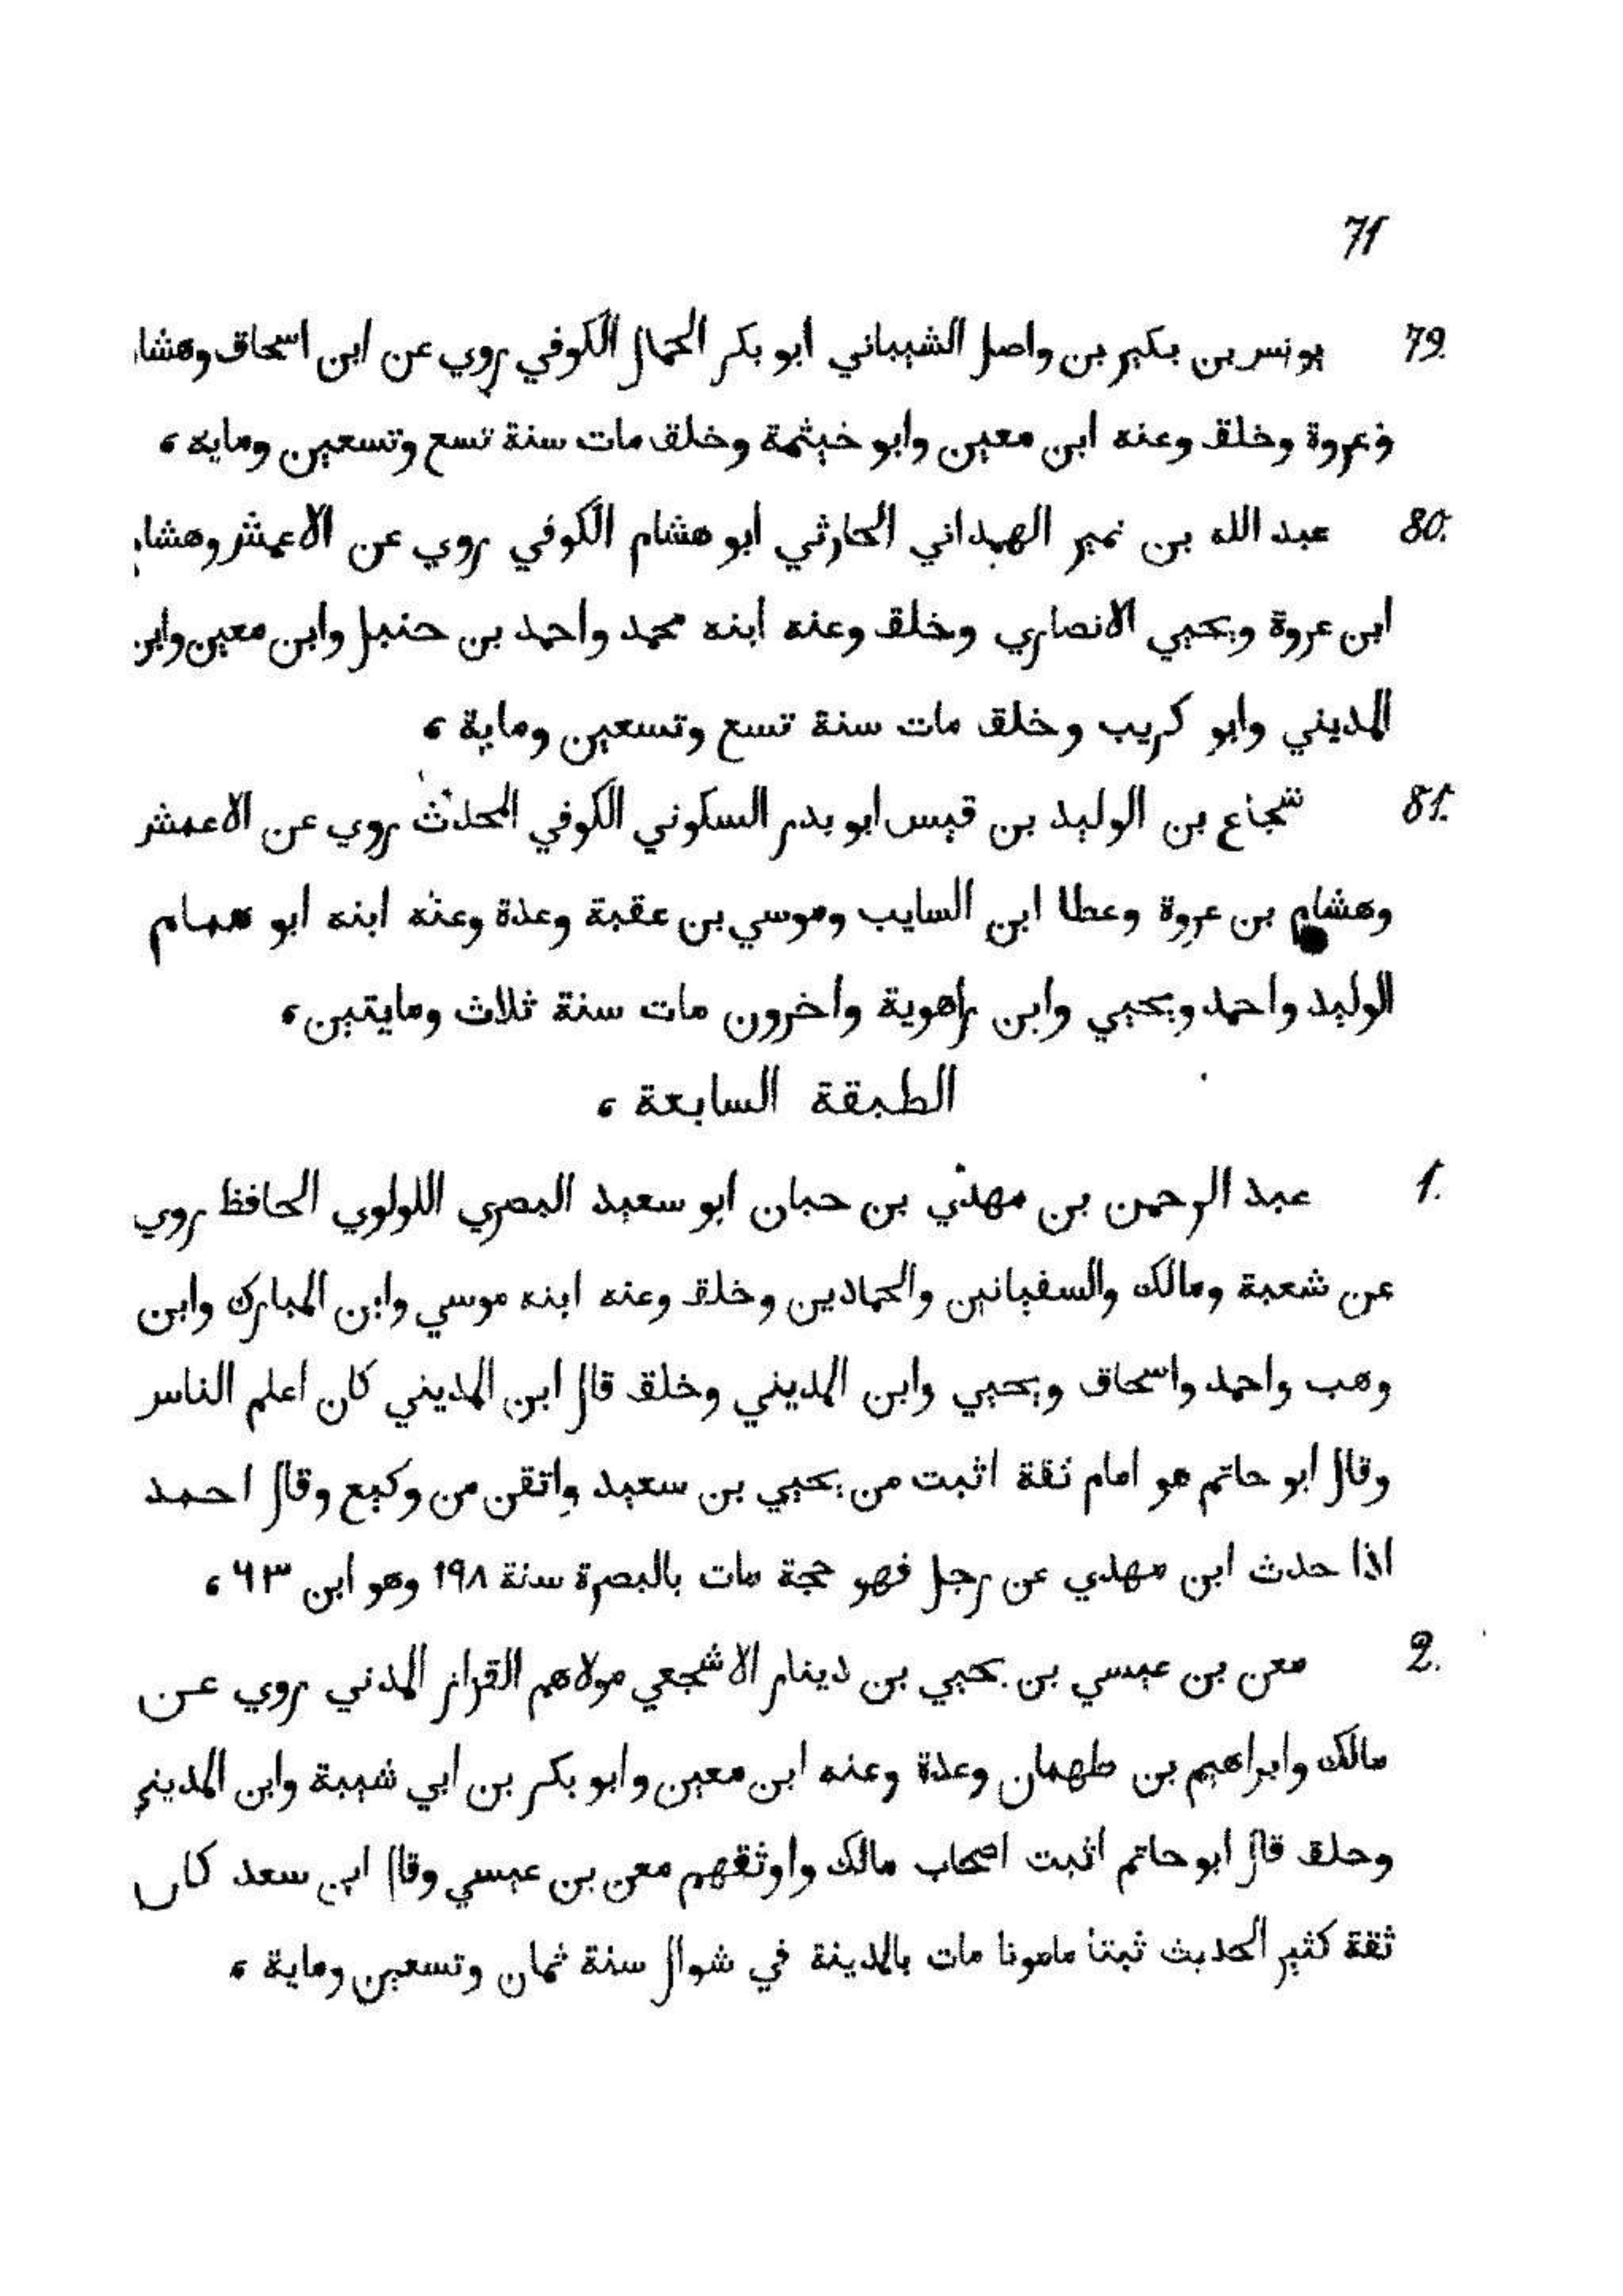 71
79. يونس بن بكير بن واصل الشيباني ابو بكر الحمال الكوفي روي عن ابن اسحاق وهشا
وعروة وخلق وعنه ابن معين وابو خيثمة وخلق مات سنة تسع وتسعين وماية ،
80. عبد الله بن نمير الهمداني الحارثي ابو هشام الكوفي روي عن الاعمش وهشام
ابن عروة ويحيي الانصاري وخلق وعنه ابنه محمد واحمد بن حنبل وابن معين وابن
المديني وابو كريب وخلق مات سنة تسع وتسعين وماية ،
81. شجاع بن الوليد بن قيس ابو بدر السكوني الكوفي المحدث روي عن الاعمش
وهشام بن عروة وعطا ابن السايب وموسي بن عقبة وعدة وعنه ابنه ابو همام
الوليد واحمد ويحيي وابن راهوية واخرون مات سنة ثلاث ومايتين ،
الطبقة السابعة ،
1. عبد الرحمن بن مهدي بن حبان ابو سعيد البصري اللولوي الحافظ روي
عن شعبة ومالك والسفيانين والحمادين وخلق وعنه ابنه موسي وابن المبارك وابن
وهب واحمد واسحاق ويحيي وابن المديني وخلق قال ابن المديني كان اعلم الناس
وقال ابو حاتم هو امام ثقة اثبت من يحيي بن سعيد واتقن من وكيع وقال احمد
اذا حدث ابن مهدي عن رجل فهو حجة مات بالبصرة سنة ١٩٨ وهو ابن ٦٣ ،
2. معن بن عيسي بن يحيي بن دينار الاشجعي مولاهم القزاز المدني روي عن
مالك وابراهيم بن طهمان وعدة وعنه ابن معين وابو بكر بن ابي شيبة وابن المديني
وخلق قال ابو حاتم اثبت اصحاب مالك واوثقهم معن بن عيسي وقال ابن سعد كان
ثقة كثير الحديث ثبتا مامونا مات بالمدينة في شوال سنة ثمان وتسعين وماية ،